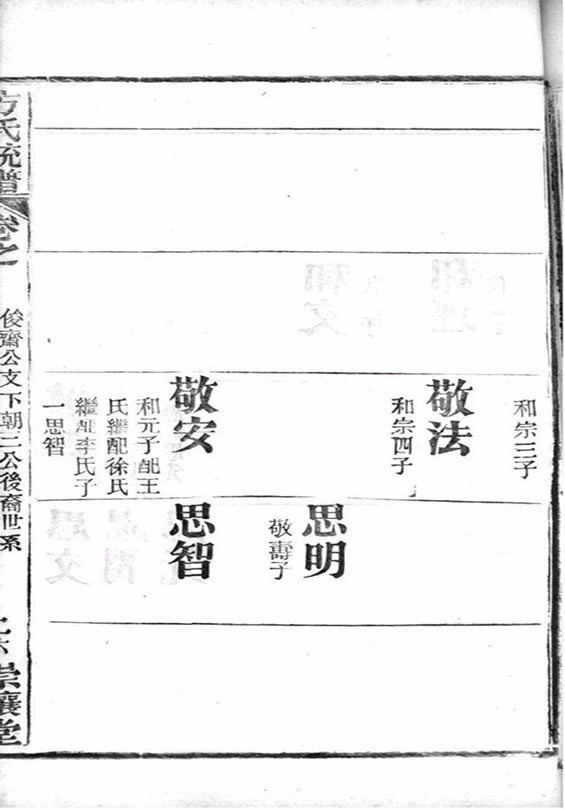 和宗三子
敬法
和宗四子
敬安
和元子配王
氏繼配徐氏
繼配李氏子
一思智
思明
敬壽子
思智
方氏統譜
卷之
俊齋公文下朝二公後裔世系
崇讓堂